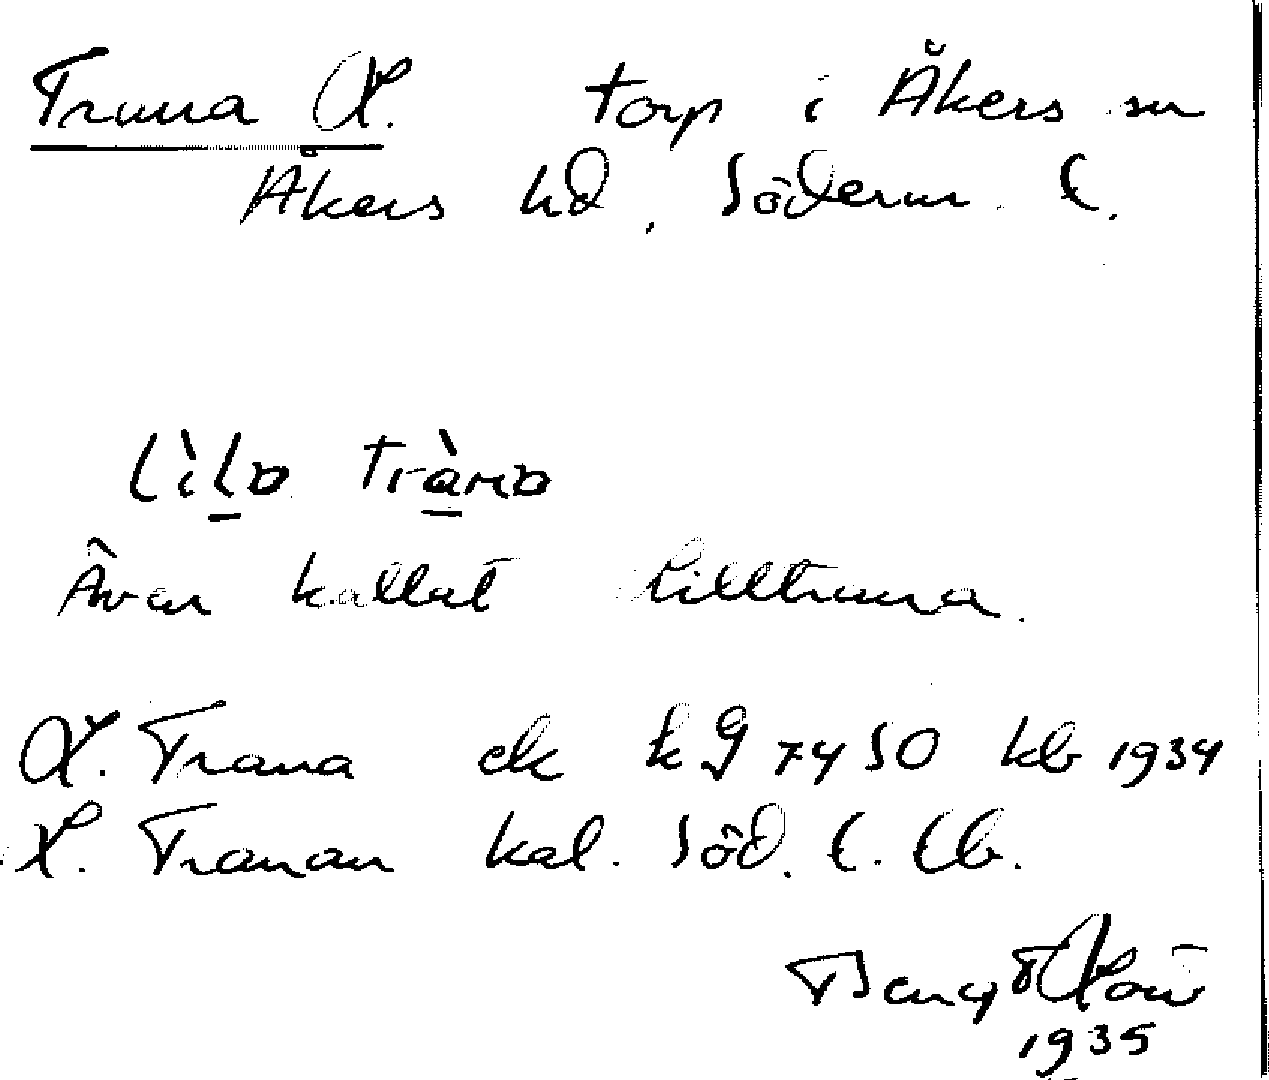 Trana L. torp i Åkers sn
Åkers hd. Söderm. l.
lìla tràna
Även kallat Lilltrana.
L. Trana ek kg 7450 kb 1934
L. Tranan kal. Söd. l. lb.
Bengt
1935